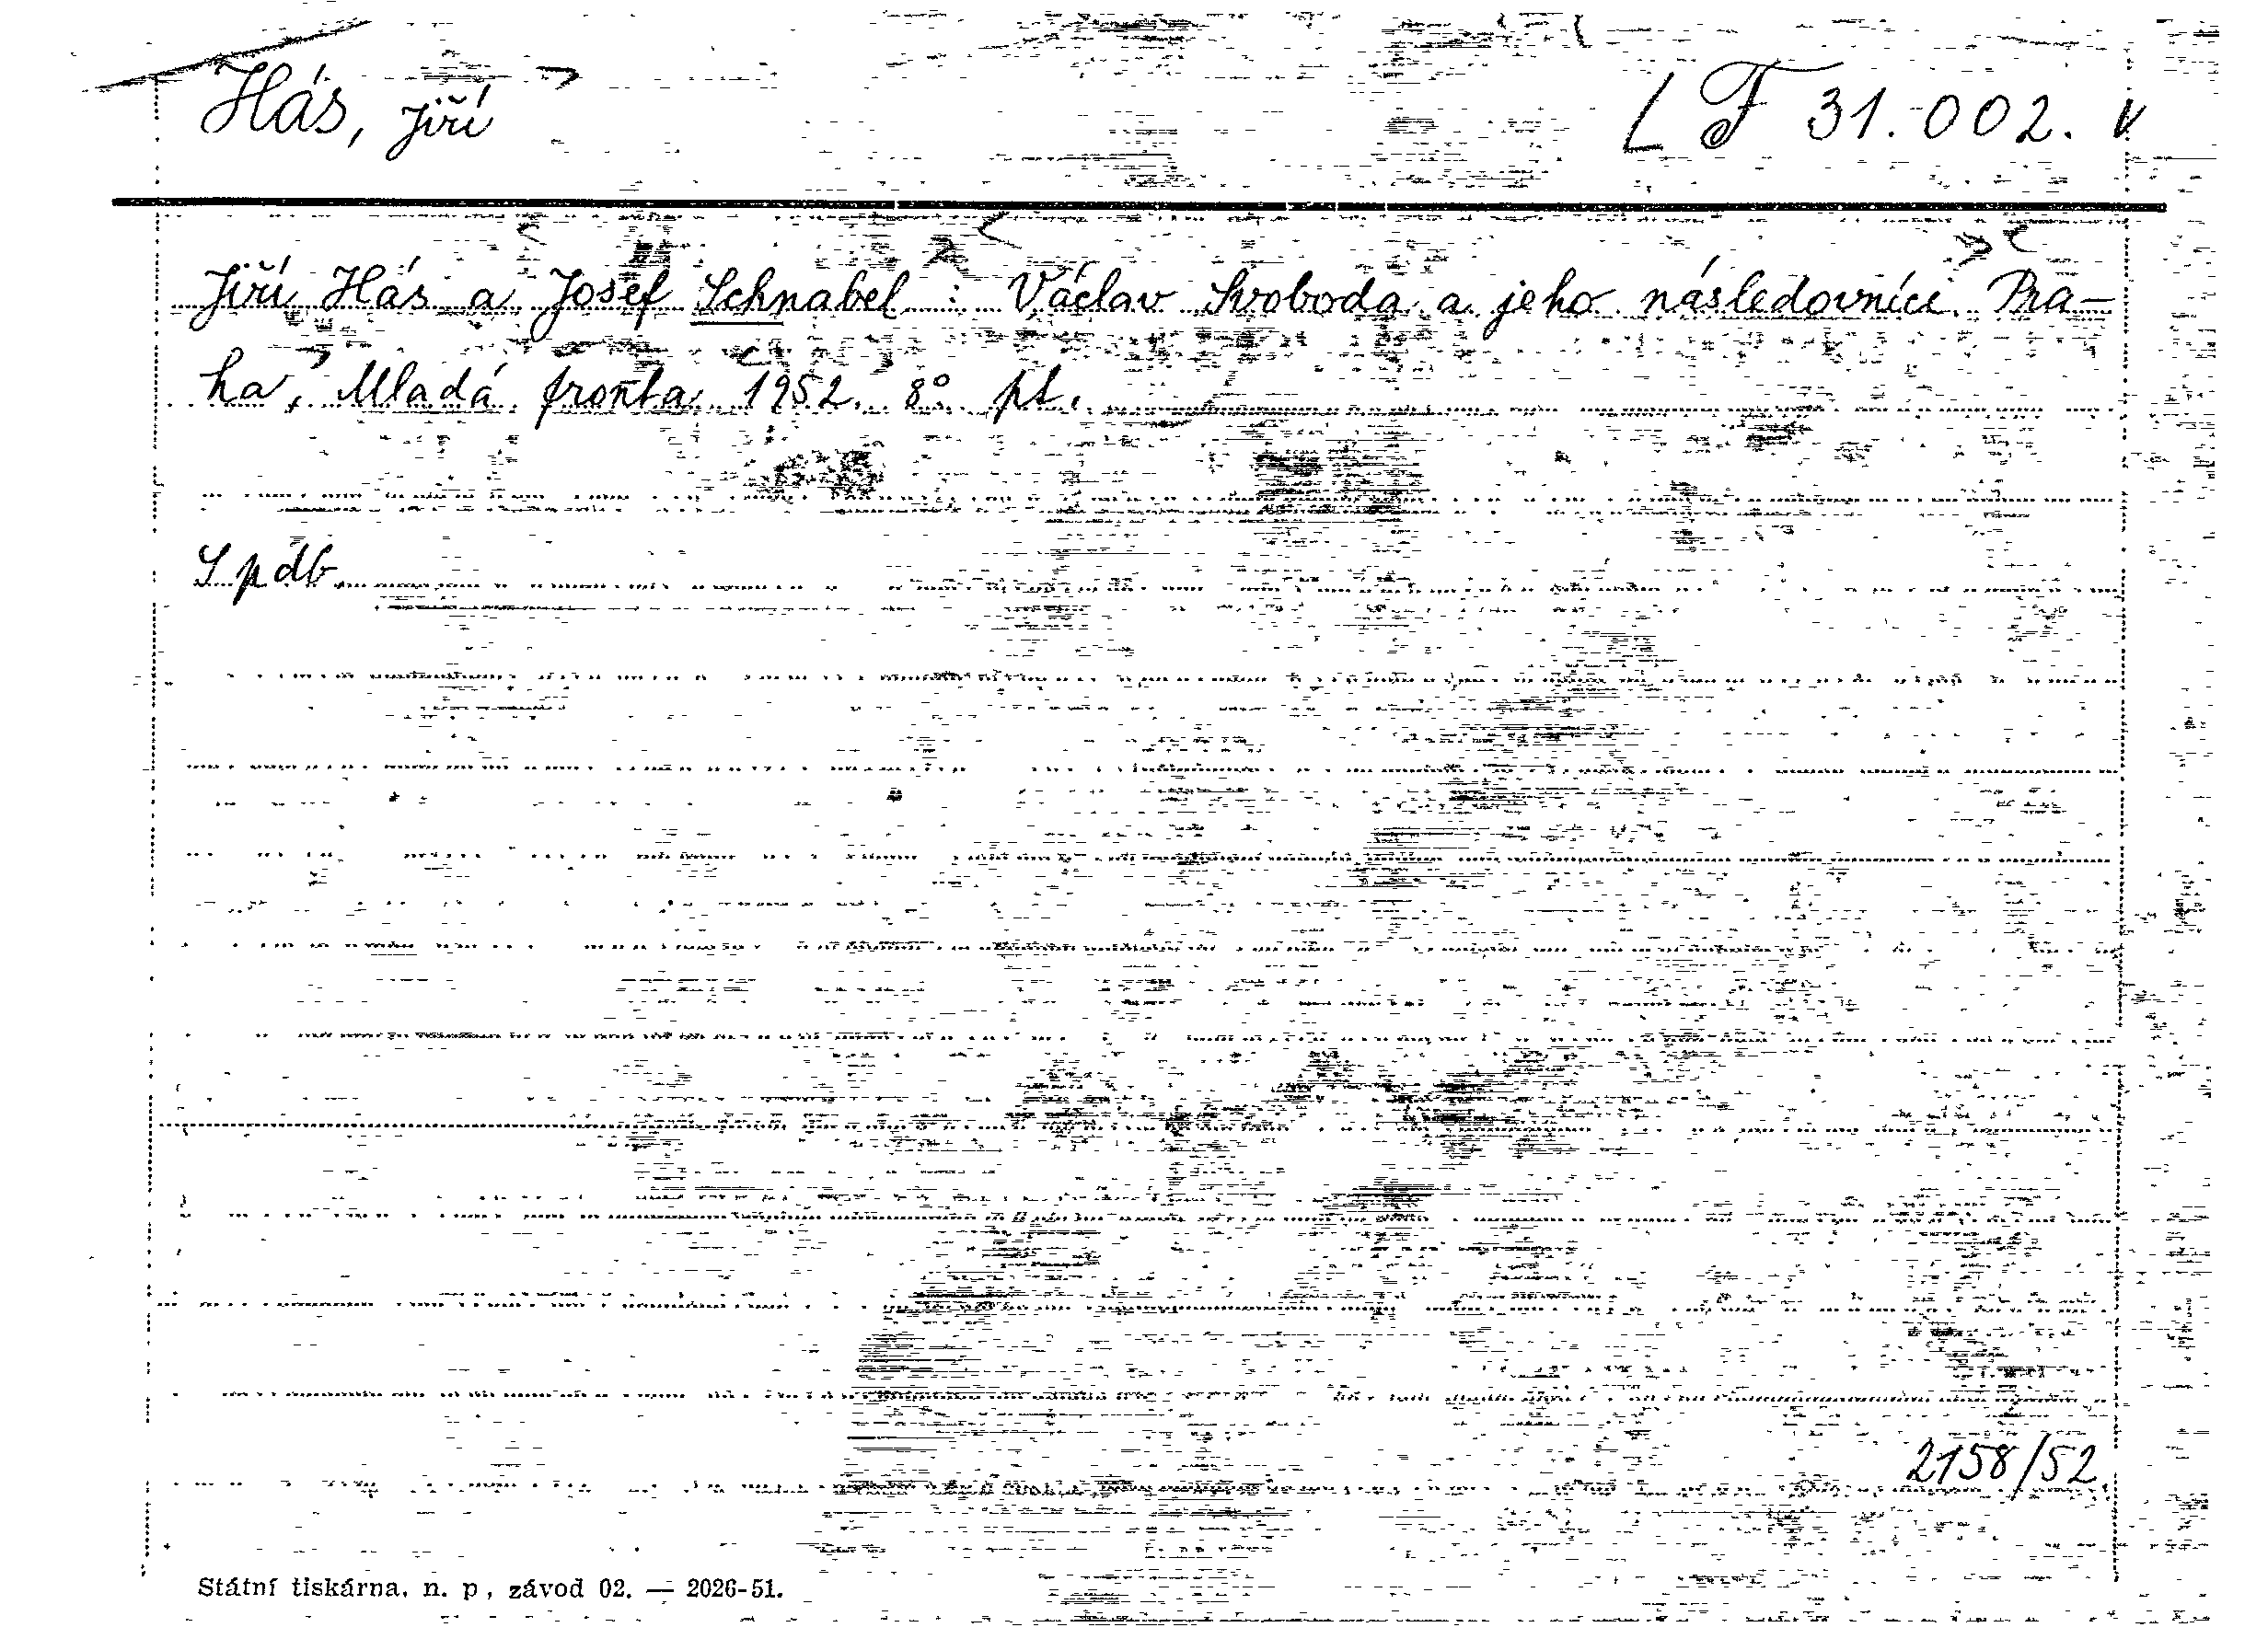 Hás, Jiří
L F 31.002. v
Jiří Hás a Josef Schnabel : Václav Svoboda a jeho následovníci. Pra-
ha, Mladá fronta 1952. 8° pt.
S pdb
2158/52.
Státní tiskárna, n. p., závod 02. — 2026-51.